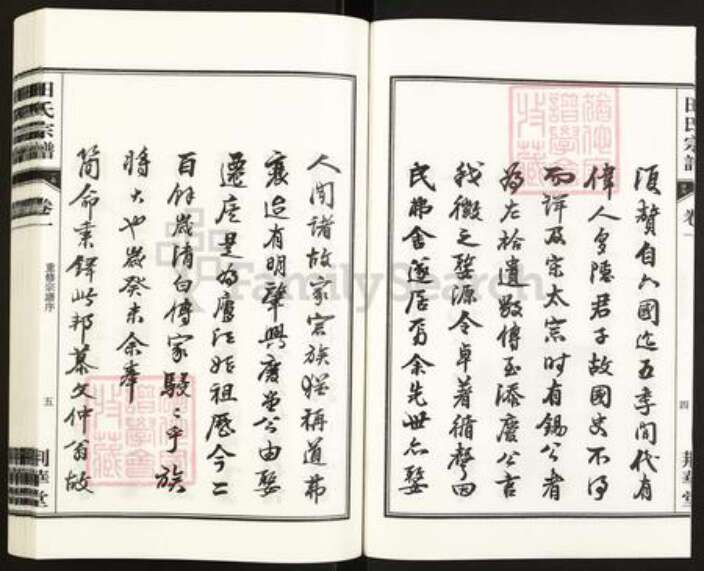 田氏宗譜
卷一
四
荆華堂
須贊自六國迄五季間代有
偉人多隱君子故國史不得
而詳及宋太宗時有錫公者
為左拾遺數傳至添慶公言
我徽之婺源令卓著循聲回
民弗舍遂居焉余先世亦婺
人聞諸故家宗族猶稱道弗
衰迨有明肇興慶堂公由婺
遷虎是為鷹江始祖歷今二
百餘歲清白傳家駸駸乎族
將大也歲癸未余奉
簡命秉鐸此邦慕文仲翁故
田氏宗譜
卷一
重修宗譜序
五
荆華堂
FamilySearch